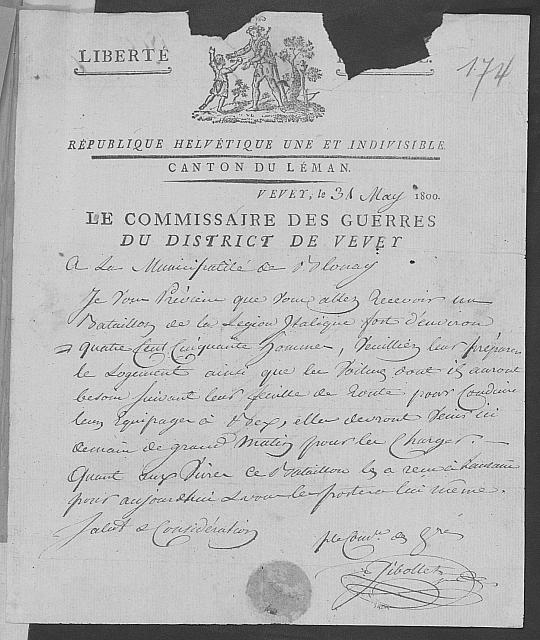 LIBERTÉ
174
RÉPUBLIQUE HELVÉTIQUE UNE ET INDIVISIBLE.
CANTON DU LÉMAN.
VEVEY, le 31 May 1800.
LE COMMISSAIRE DES GUERRES
DU DISTRICT DE VEVEY
A La Municipalité de Blonay
Je Vous Préviens que Vous allez Recevoir un
Bataillon de la Légion Italique fort d'environ
quatre Cent Cinquante hommes, Veuilliez leur préparer
le Logement ainsi que les Voitures dont ils auront
besoin suivant leur feuille de Route pour Conduire
leurs Equipages à Bex, elles devront Venir ici
demain de grand Matin pour les Charger.
Quant aux Vivres ce Bataillon les a reçu à Lausanne
pour aujourdhui & vous les portera lui même.
Salut & Considération